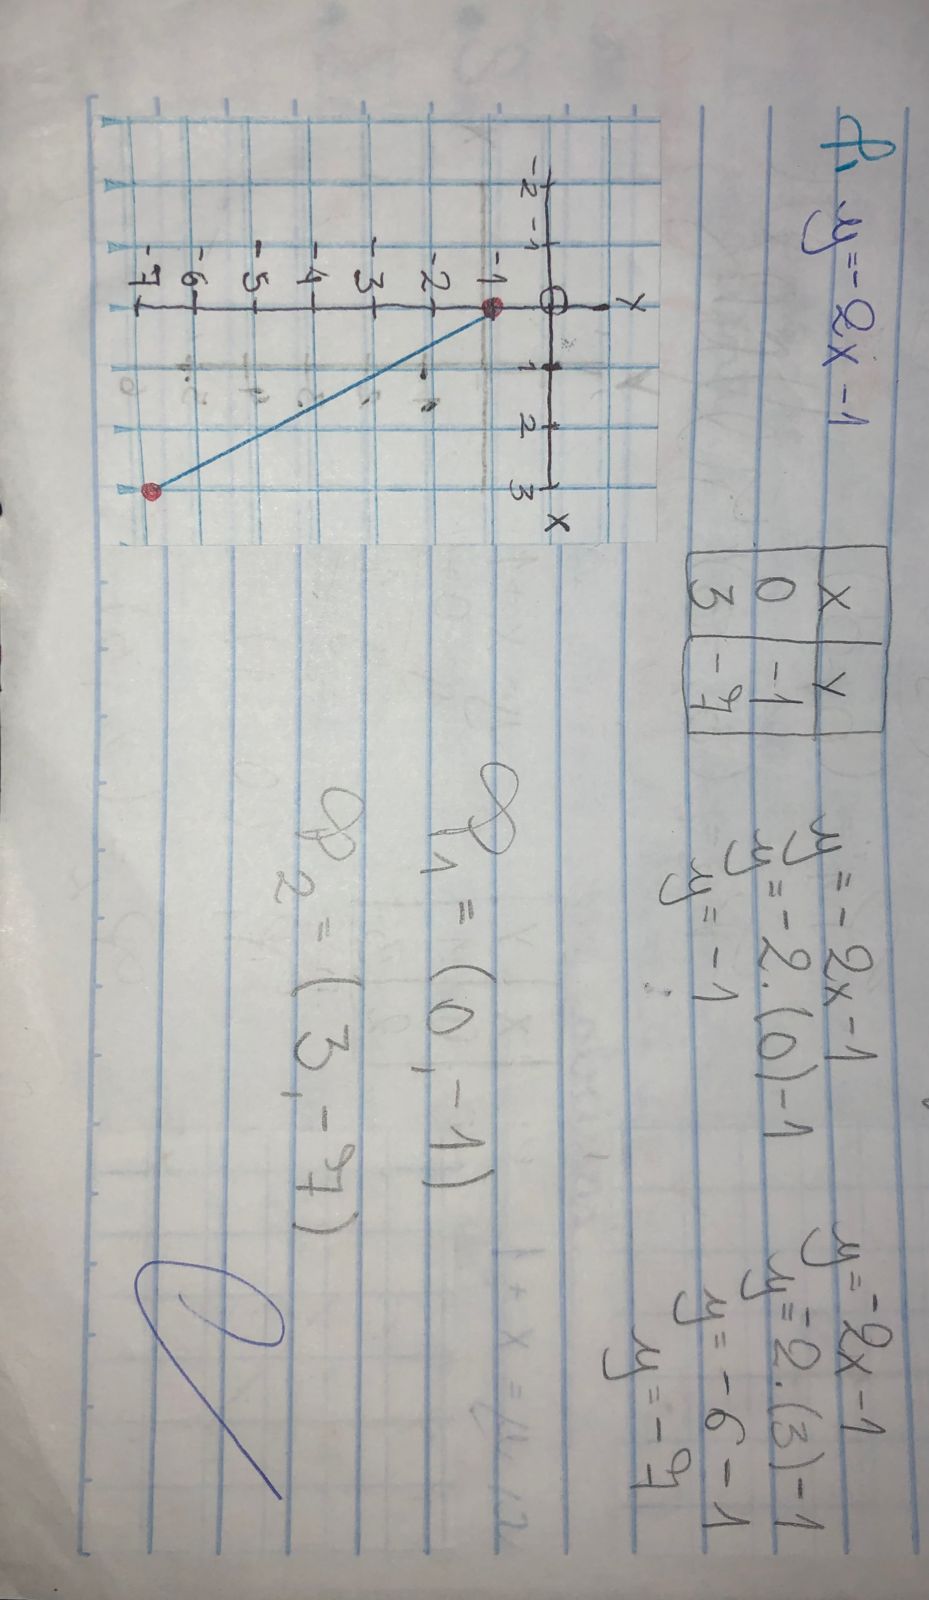 f, y=-2x-1
x y
0 -1
3 -7
y=-2x-1
y=-2.(0)-1
y=-1
y=-2x-1
y=-2.(3)-1
y=-6-1
y=-7
Y
X
-2 -1 1 2 3
-1
-2
-3
-4
-5
-6
-7
P1 = (0,-1)
P2 = (3,-7)